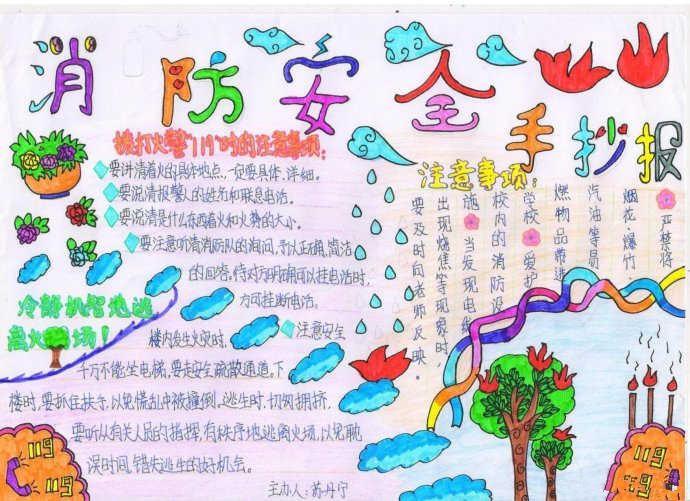 消防安全
手抄报
拨打火警"119"时的注意事项:
要讲清着火的具体地点,一定要具体、详细。
要说清报警人的姓名和联系电话。
要说清是什么东西着火和火势的大小。
要注意听清消防队的询问,予以正确,简洁
的回答,待对方明确可以挂电话时,
方可挂断电话。
冷静机智地逃
离火现场!
注意安全
楼内发生火灾时,
千万不能坐电梯,要走安全疏散通道。下
楼时,要抓住扶手,以免慌乱中被撞倒。逃生时,切勿拥挤,
要听从有关人员的指挥,有秩序地逃离火场,以免耽
误时间,错失逃生的好机会。
主办人:苏丹宁
注意事项:
严禁将
烟花、爆竹
汽油等易
燃物品带进
学校
爱护
校内的消防设
施
当发现电线
出现烧焦等现象时,
要及时向老师反映。
119
119
119
119